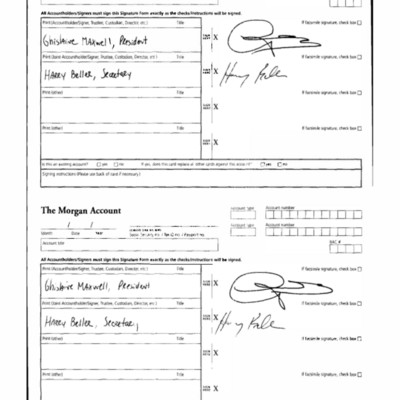 All Accountholders/Signers must sign this Signature Form exactly as the checks/instructions will be signed.
Print (Name Accountholder/Signer, Trustee, Custodian, Director, etc.) Title If facsimile signature, check box
Ghislaine Maxwell, President X
Print (Name Accountholder/Signer, Trustee, Custodian, Director, etc.) Title If facsimile signature, check box
Harry Beller, Secretary X
Print (Other) Title If facsimile signature, check box
X
Print (Other) Title If facsimile signature, check box
X
Is this an existing account? Yes No If yes, does this card replace all other cards against this account? Yes No
Signing instructions (Please use back of card if necessary.)
The Morgan Account
Account Type Account Number
Month / Day / Year
Account Title
All Accountholders/Signers must sign this Signature Form exactly as the checks/instructions will be signed.
Print (Name Accountholder/Signer, Trustee, Custodian, Director, etc.) Title If facsimile signature, check box
Ghislaine Maxwell, President X
Print (Name Accountholder/Signer, Trustee, Custodian, Director, etc.) Title If facsimile signature, check box
Harry Beller, Secretary X
Print (Other) Title If facsimile signature, check box
X
Print (Other) Title If facsimile signature, check box
X